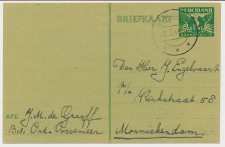 BRIEFKAART
NEDERLAND
Den Heer J. Engelvaart
Kerkstraat 58
Monnickendam
AFZ.
J.M. de Graaff
Oud-Vossemeer